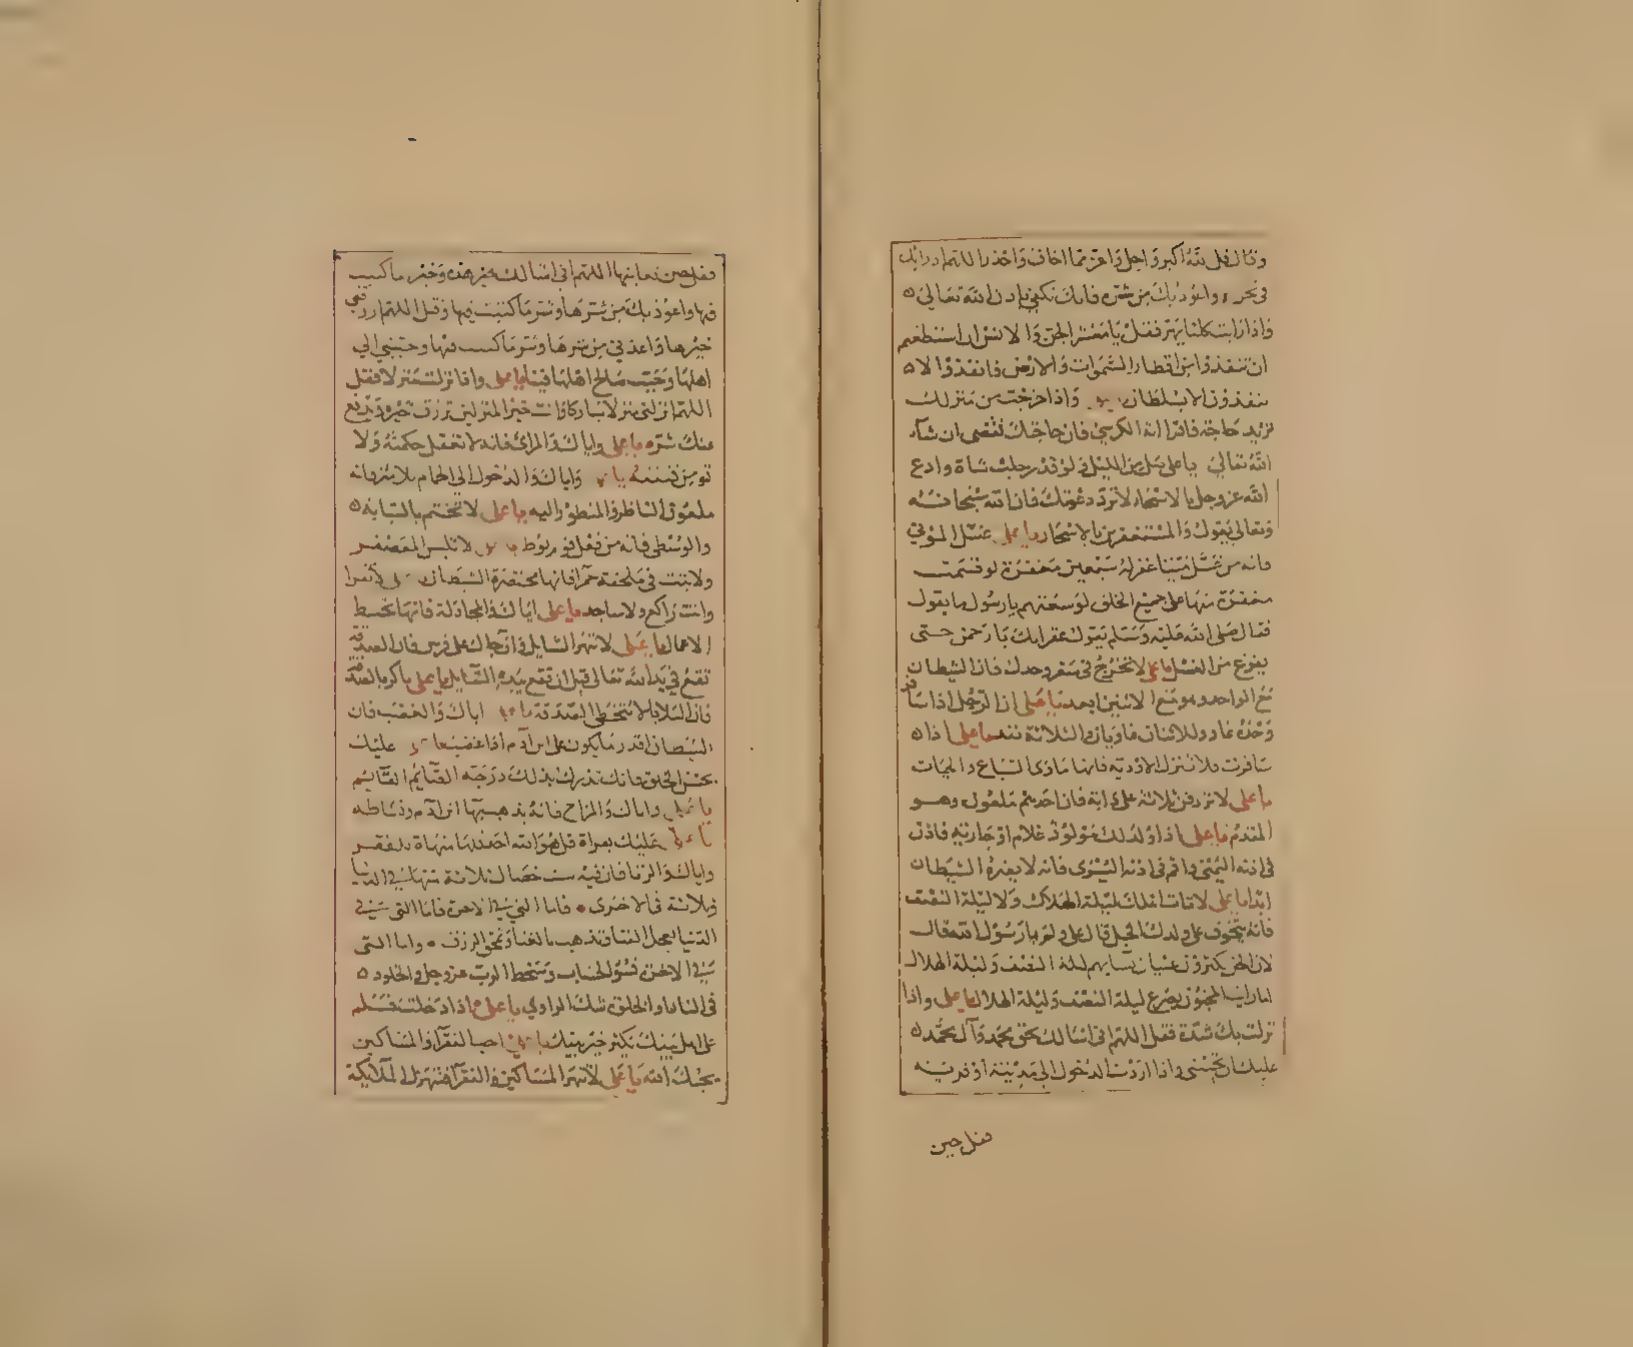 وقال قل الله أكبر واجل واعز مما اخاف واحذر اللهم ادرابك
في نحره واعوذ بك من شره فانك تكفي باذن الله تعالى
واذا رايت كلبا يهر فقل يا معشر الجن والانس ان استطعتم
ان تنفذوا من اقطار السموات والارض فانفذوا لا
تنفذون الا بسلطان واذا خرجت من منزلك
تريد حاجة فاقرا اية الكرسي فان حاجتك تقضى ان شاء
الله تعالى يا علي صل من الليل ولو قدر حلب شاة وادع
الله عز وجل بالاسحار لا ترد دعوتك فان الله سبحانه
وتعالى يقول والمستغفرين بالاسحار يا علي غسل الموتى
فانه من غسل ميتا غفر له سبعين مغفرة لو قسمت
مغفرة منها على جميع الخلق لوسعتهم يا رسول ما يقول
فقال صلى الله عليه وسلم يقول غفرانك يا رحمن حتى
يفرغ من الغسل يا علي لا تخرج في سفر وحدك فان الشيطان
مع الواحد وهو مع الاثنين ابعد يا علي ان الرجل اذا سافر
وحده غاو والاثنان غاويان والثلاثة نفر يا علي اذا
سافرت فلا تنزل الاودية فانها ماوى السباع والحيات
يا علي لا تردفن ثلاثة على دابة فان احدهم ملعون وهو
المقدم يا علي اذا ولد لك مولود غلام او جارية فاذن
في اذنه اليمنى واقم في اذنه اليسرى فانه لا يضره الشيطان
ابدا يا علي لا تات اهلك ليلة الهلال ولا ليلة النصف
فانه يتخوف على ولدك الخبل قال علي ولم يا رسول الله فقال
لان الجن يكثرون غشيان نسايهم ليلة النصف وليلة الهلال
اما رايت المجنون يصرع ليلة النصف وليلة الهلال يا علي واذا
نزلت بك شدة فقل اللهم اني اسالك بحق محمد وآل محمد
عليك ان تنجيني واذا اردت الدخول الى مدينة او قرية
فقل حين
فقل حين تعاينها اللهم اني اسالك خير هذه وخير ما كتبت
فيها واعوذ بك من شرها وشر ما كتبت فيها وقل اللهم ارزقني
خيرها واعذني من شرها وشر ما كتبت فيها وحببني الى
اهلها وحبب صالح اهلها فينا يا علي واذا نزلت منزلا فقل
اللهم انزلني منزلا مباركا وانت خير المنزلين ترزق خيره ويدفع
عنك شره يا علي واياك والمراء فانه لا تعقل حكمته ولا
تومن فتنته يا علي واياك والدخول الى الحمام بلا مئزر فانه
ملعون الناظر والمنظور اليه يا علي لا تختم بالسبابة
والوسطى فانه من فعل قوم لوط يا علي لا تلبس المعصفر
ولا تبت في ملحفة حمرا فانها محتضرة الشيطان يا علي لا تقرا
وانت راكع ولا ساجد يا علي اياك والمجادلة فانها تحبط
الاعمال يا علي لا تنهر السايل وان جاك على فرس فان الصدقة
تقع في يد الله تعالى قبل ان تقع بيد السايل يا علي باكر بالصدقة
فان البلايا لا تتخطى الصدقة يا علي اياك والغضب فان
الشيطان اقدر ما يكون على ابن آدم اذا غضب يا علي عليك
بحسن الخلق فانك تدرك بذلك درجة الصايم القايم
يا علي واياك والمزاح فانه يذهب بهاء ابن آدم ونشاطه
يا علي عليك بقراة قل هو الله احد فانها منهاة للفقر
واياك والزنا فان فيه ست خصال ثلاثة منها في الدنيا
وثلاثة في الاخرى فاما التي في الاخرة فاما التي في
الدنيا يعجل الفنا ويذهب بالغنا ويمحق الرزق واما التي
في الاخرة فسوء الحساب وسخط الرب عز وجل والخلود
في النار او الخلق شك الراوي يا علي اذا دخلت فسلم
على اهل بيتك يكثر خير بيتك يا علي احب الفقرا والمساكين
يحبك الله يا علي لا تنهر المساكين والفقرا فتنهرك الملايكة